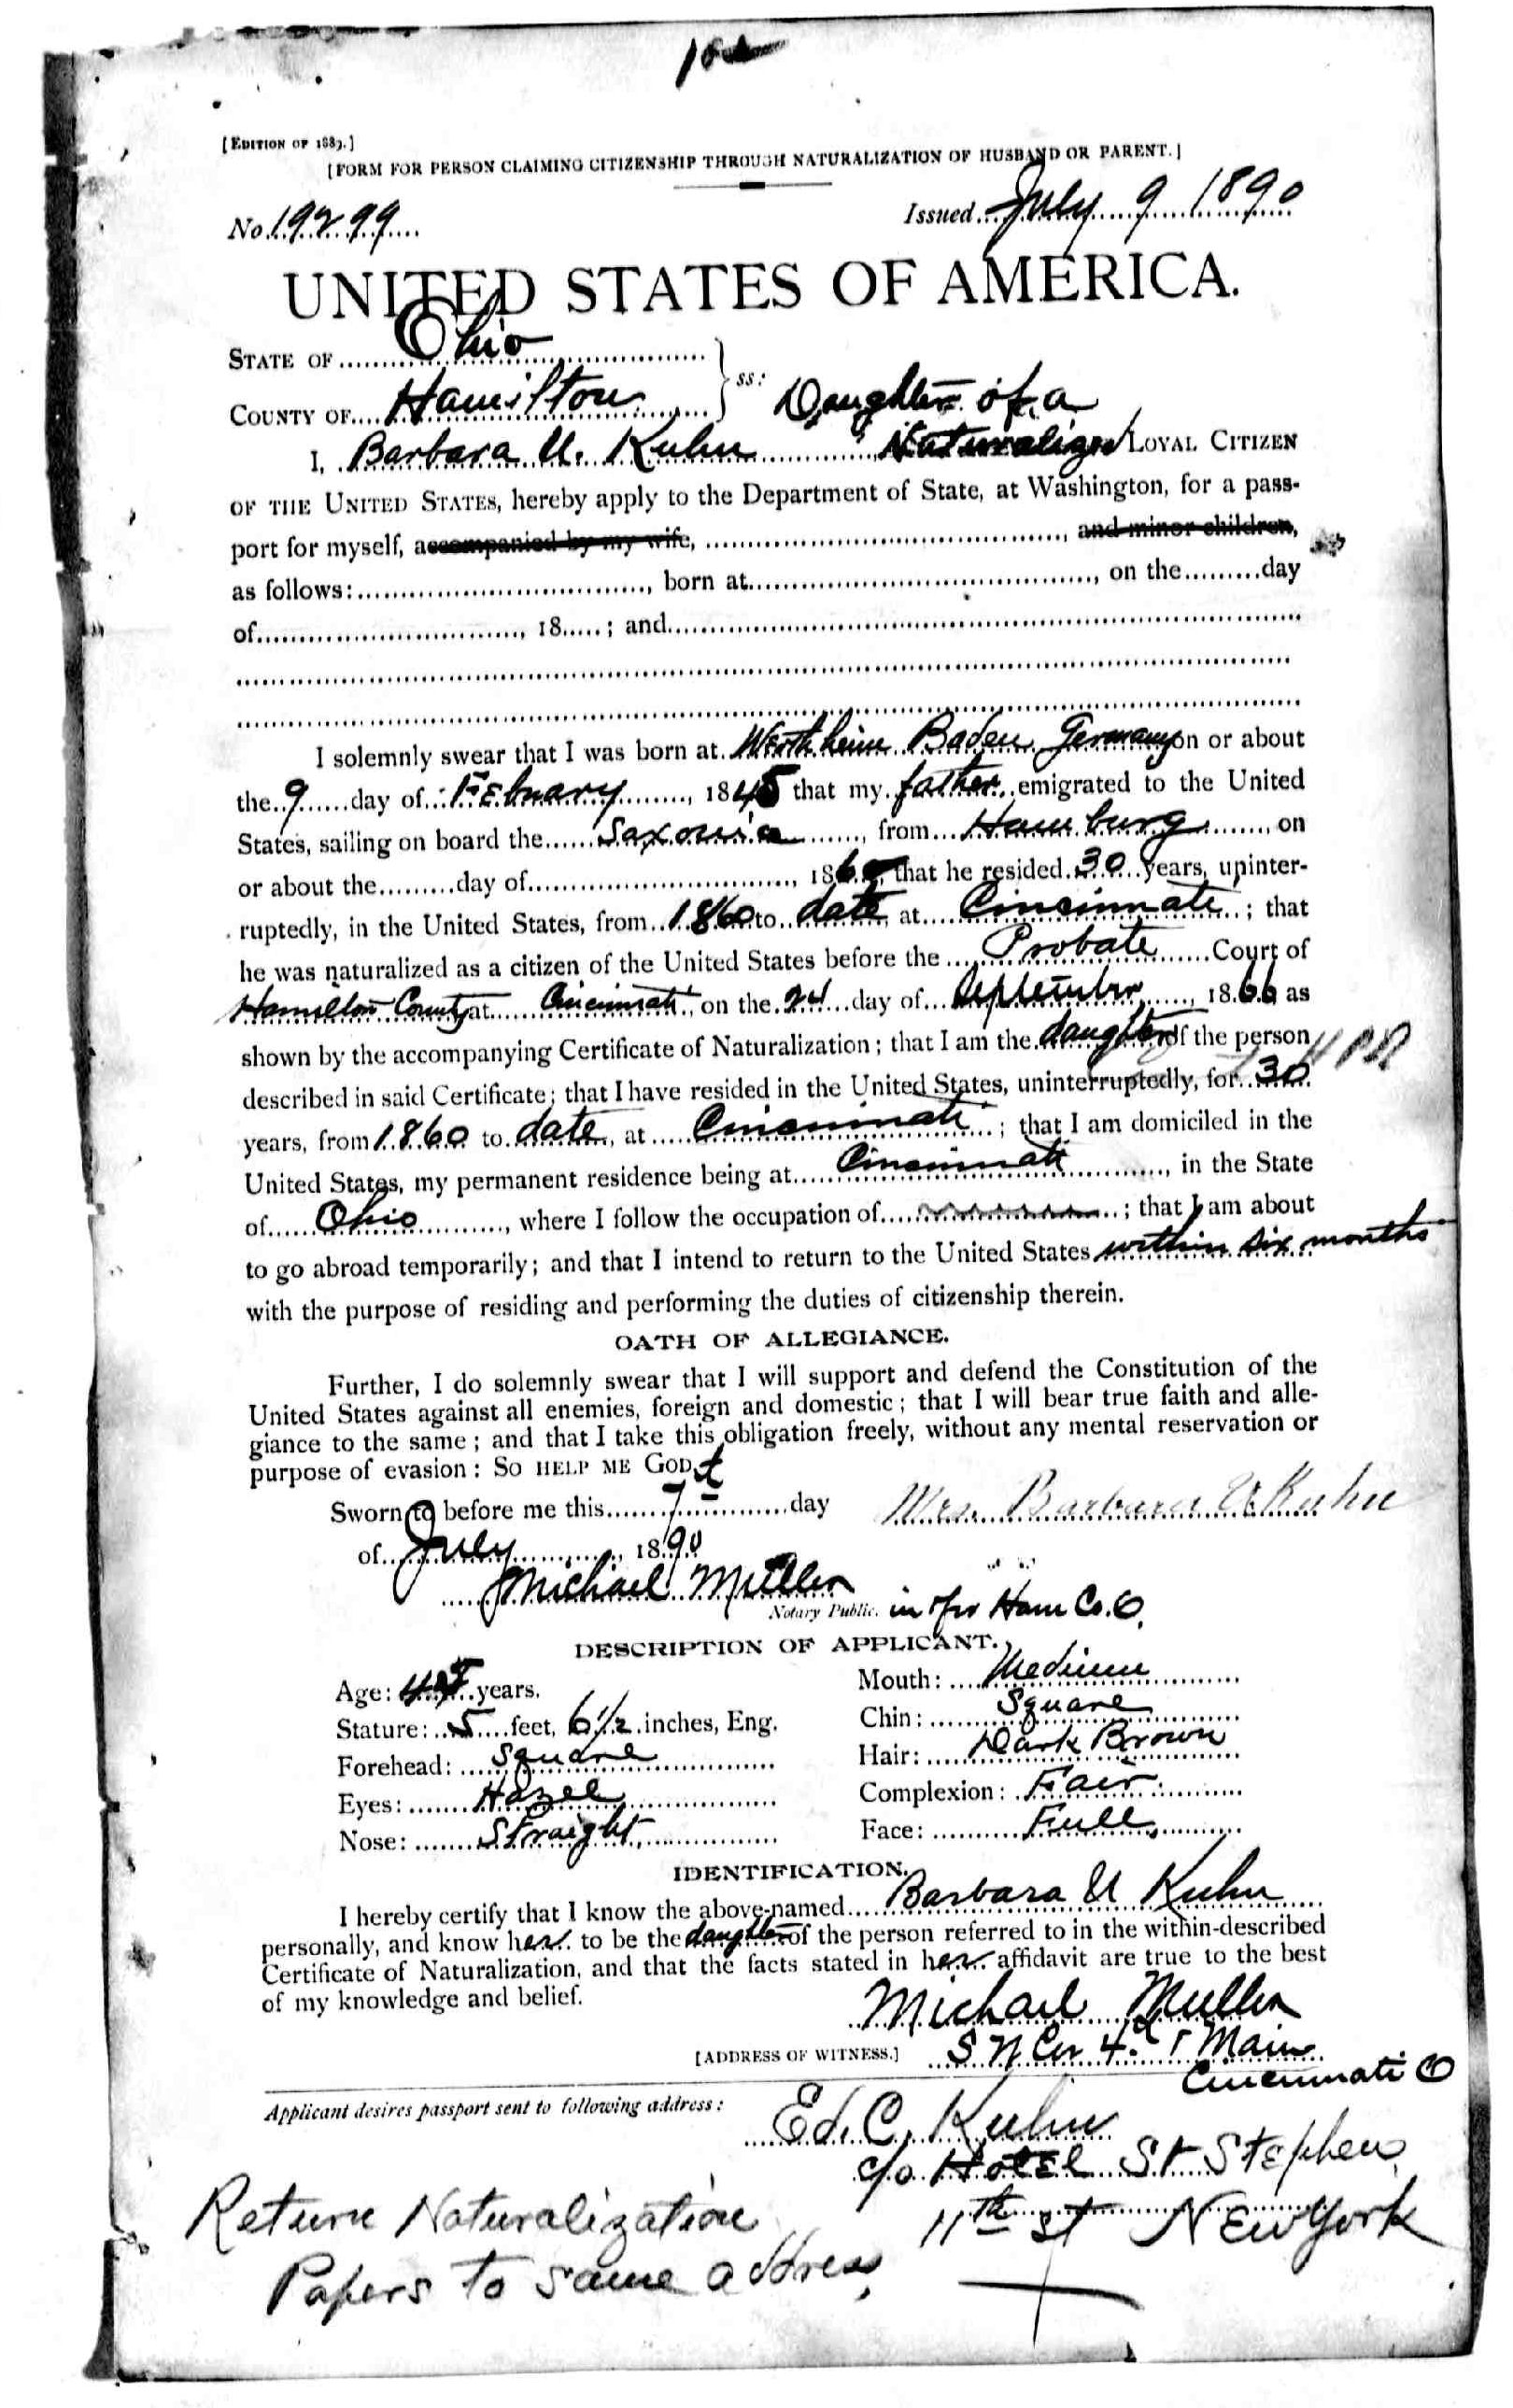 [EDITION OF 1889.]
[FORM FOR PERSON CLAIMING CITIZENSHIP THROUGH NATURALIZATION OF HUSBAND OR PARENT.]
No. 19299 Issued July 9 1890
UNITED STATES OF AMERICA.
STATE OF Ohio
COUNTY OF Hamilton } ss: Daughter of a
I, Barbara U. Kuhn Naturalized LOYAL CITIZEN
OF THE UNITED STATES, hereby apply to the Department of State, at Washington, for a pass-
port for myself, accompanied by my wife, ............, and minor children,
as follows: ............, born at ............, on the ......... day
of ............, 18.....; and ............
I solemnly swear that I was born at Wertheim Baden Germany on or about
the 9 day of Febuary, 1845 that my father emigrated to the United
States, sailing on board the Saxonia, from Hamburg, on
or about the ......... day of ............, 1860, that he resided 30 years, uninter-
ruptedly, in the United States, from 1860 to date, at Cincinnati; that
he was naturalized as a citizen of the United States before the Probate Court of
Hamilton County at Cincinnati, on the 24 day of September, 1866 as
shown by the accompanying Certificate of Naturalization; that I am the daughter of the person
described in said Certificate; that I have resided in the United States, uninterruptedly, for 30
years, from 1860 to date, at Cincinnati; that I am domiciled in the
United States, my permanent residence being at Cincinnati, in the State
of Ohio, where I follow the occupation of ............; that I am about
to go abroad temporarily; and that I intend to return to the United States within six months
with the purpose of residing and performing the duties of citizenship therein.
OATH OF ALLEGIANCE.
Further, I do solemnly swear that I will support and defend the Constitution of the
United States against all enemies, foreign and domestic; that I will bear true faith and alle-
giance to the same; and that I take this obligation freely, without any mental reservation or
purpose of evasion: SO HELP ME GOD.
Sworn to before me this 7t day Mrs. Barbara U Kuhn
of July, 1890
Michael Muller
Notary Public. in & for Ham Co. O.
DESCRIPTION OF APPLICANT.
Age: 45 years. Mouth: Medium
Stature: 5 feet, 6 1/2 inches, Eng. Chin: Square
Forehead: Square Hair: Dark Brown
Eyes: Hazel Complexion: Fair
Nose: Straight Face: Full
IDENTIFICATION.
I hereby certify that I know the above-named Barbara U Kuhn
personally, and know her to be the daughter of the person referred to in the within-described
Certificate of Naturalization, and that the facts stated in her affidavit are true to the best
of my knowledge and belief.
Michael Muller
[ADDRESS OF WITNESS.] Cor 4 & Main
Cincinnati O
Applicant desires passport sent to following address: Ed. C. Kuhn
c/o Hotel St Stephen
11th st New York
Return Naturalization
Papers to same address